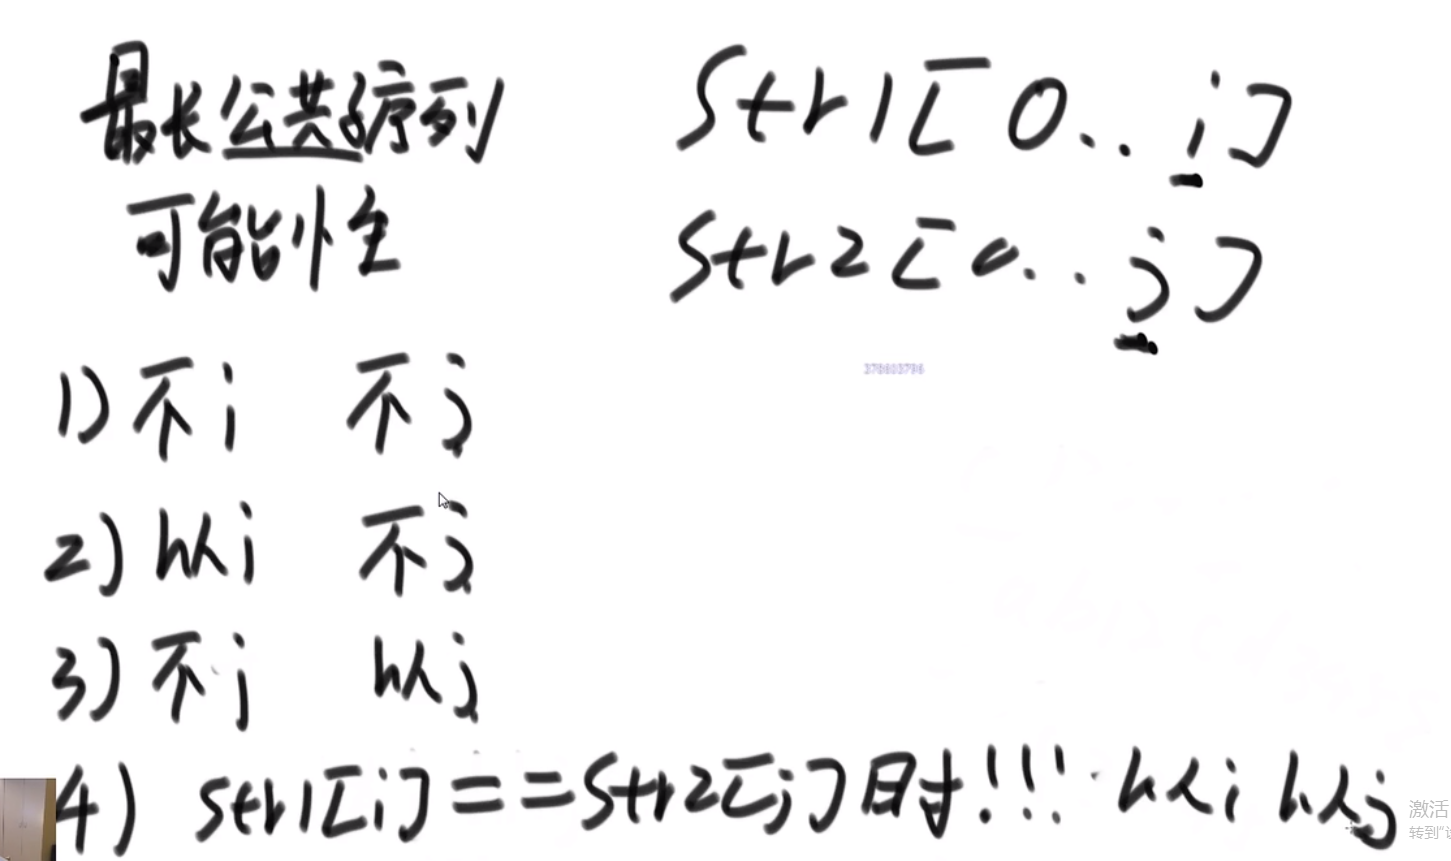 最长公共子序列
可能性
str1[0..i]
str2[0..j]
378803796
1)不i 不j
2)以i 不j
3)不j 以j
4) str1[i]==str2[j]时!!! 以i 以j
激活
转到"设